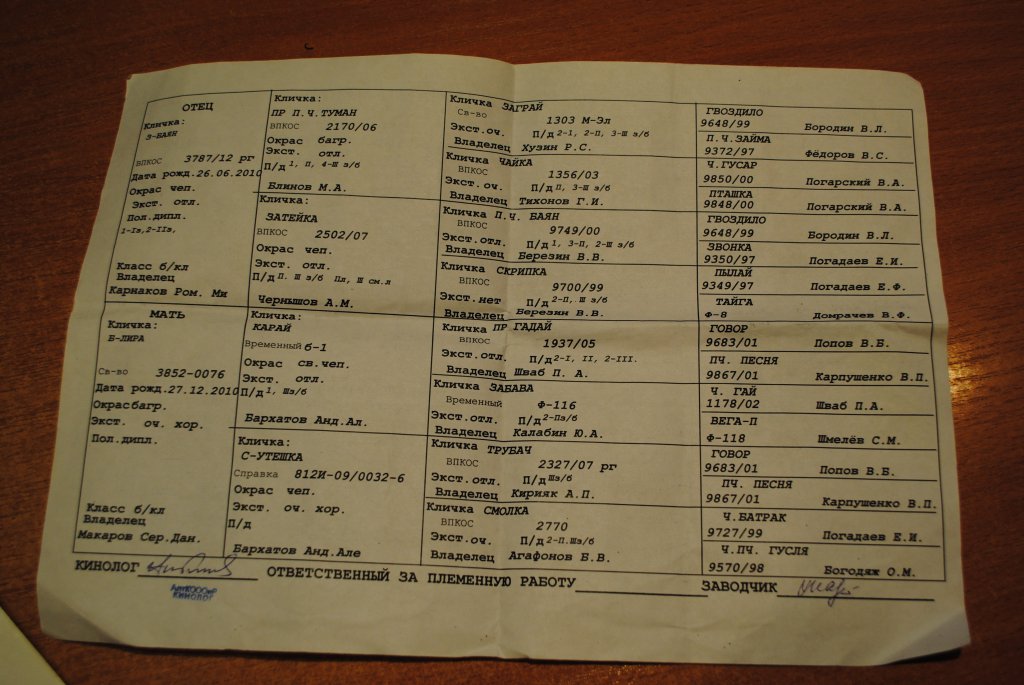 ОТЕЦ
Кличка:
З-БАЯН
ВПКОС 3787/12 рг
Дата рожд.26.06.2010
Окрас чеп.
Экст. отл.
Пол.дипл.
1-Iз,2-IIз,
Класс б/кл
Владелец
Карнаков Ром. Ми
МАТЬ
Кличка:
Б-ЛИРА
Св-во 3852-0076
Дата рожд.27.12.2010
Окрас багр.
Экст. оч. хор.
Пол.дипл.
Класс б/кл
Владелец
Макаров Сер.Дан.
Кличка:
ПР П.Ч.ТУМАН
ВПКОС 2170/06
Окрас багр.
Экст. отл.
П/д 1, П, 4-Ш з/б
Блинов М.А.
Кличка:
ЗАТЕЙКА
ВПКОС 2502/07
Окрас чеп.
Экст. отл.
П/д П. Ш з/б Пл, Ш см.л
Чернышов А.М.
Кличка:
КАРАЙ
Временный б-1
Окрас св.чеп.
Экст. отл.
П/д 1, Шз/б
Бархатов Анд.Ал.
Кличка:
С-УТЕШКА
Справка 812И-09/0032-6
Окрас чеп.
Экст. оч. хор.
П/д
Бархатов Анд.Але
Кличка ЗАГРАЙ
Св-во 1303 М-Эл
Экст.оч. П/д 2-I, 2-П, 3-Ш з/б
Владелец Хузин Р.С.
Кличка ЧАЙКА
ВПКОС 1356/03
Экст.оч. П/д П, 3-Ш з/б
Владелец Тихонов Г.И.
Кличка П.Ч. БАЯН
ВПКОС 9749/00
Экст.отл. П/д 1, 3-П, 2-Ш з/б
Владелец Березин В.В.
Кличка СКРИПКА
ВПКОС 9700/99
Экст.нет П/д 2-П, Ш з/б
Владелец Березин В.В.
Кличка ПР ГАДАЙ
ВПКОС 1937/05
Экст.отл. П/д 2-I, II, 2-III.
Владелец Шваб П. А.
Кличка ЗАБАВА
Временный Ф-116
Экст.отл. П/д 2-Пз/б
Владелец Калабин Ю.А.
Кличка ТРУБАЧ
ВПКОС 2327/07 рг
Экст.отл. П/д Шз/б
Владелец Кирияк А.П.
Кличка СМОЛКА
ВПКОС 2770
Экст.оч. П/д 2-П.Шз/б
Владелец Агафонов Б.В.
ГВОЗДИЛО
9648/99 Бородин В.Л.
П.Ч.ЗАЙМА
9372/97 Фёдоров В.С.
Ч.ГУСАР
9850/00 Погарский В.А.
ПТАШКА
9848/00 Погарский В.А.
ГВОЗДИЛО
9648/99 Бородин В.Л.
ЗВОНКА
9350/97 Погадаев Е.И.
ПЫЛАЙ
9349/97 Погадаев Е.Ф.
ТАЙГА
Ф-8 Домрачев В.Ф.
ГОВОР
9683/01 Попов В.Б.
ПЧ. ПЕСНЯ
9867/01 Карпушенко В.П.
Ч. ГАЙ
1178/02 Шваб П.А.
ВЕГА-П
Ф-118 Шмелёв С.М.
ГОВОР
9683/01 Попов В.Б.
ПЧ. ПЕСНЯ
9867/01 Карпушенко В.П.
Ч.БАТРАК
9727/99 Погадаев Е.И.
Ч.ПЧ. ГУСЛЯ
9570/98 Богодяж О.М.
КИНОЛОГ ОТВЕТСТВЕННЫЙ ЗА ПЛЕМЕННУЮ РАБОТУ ЗАВОДЧИК
КИНОЛОГ